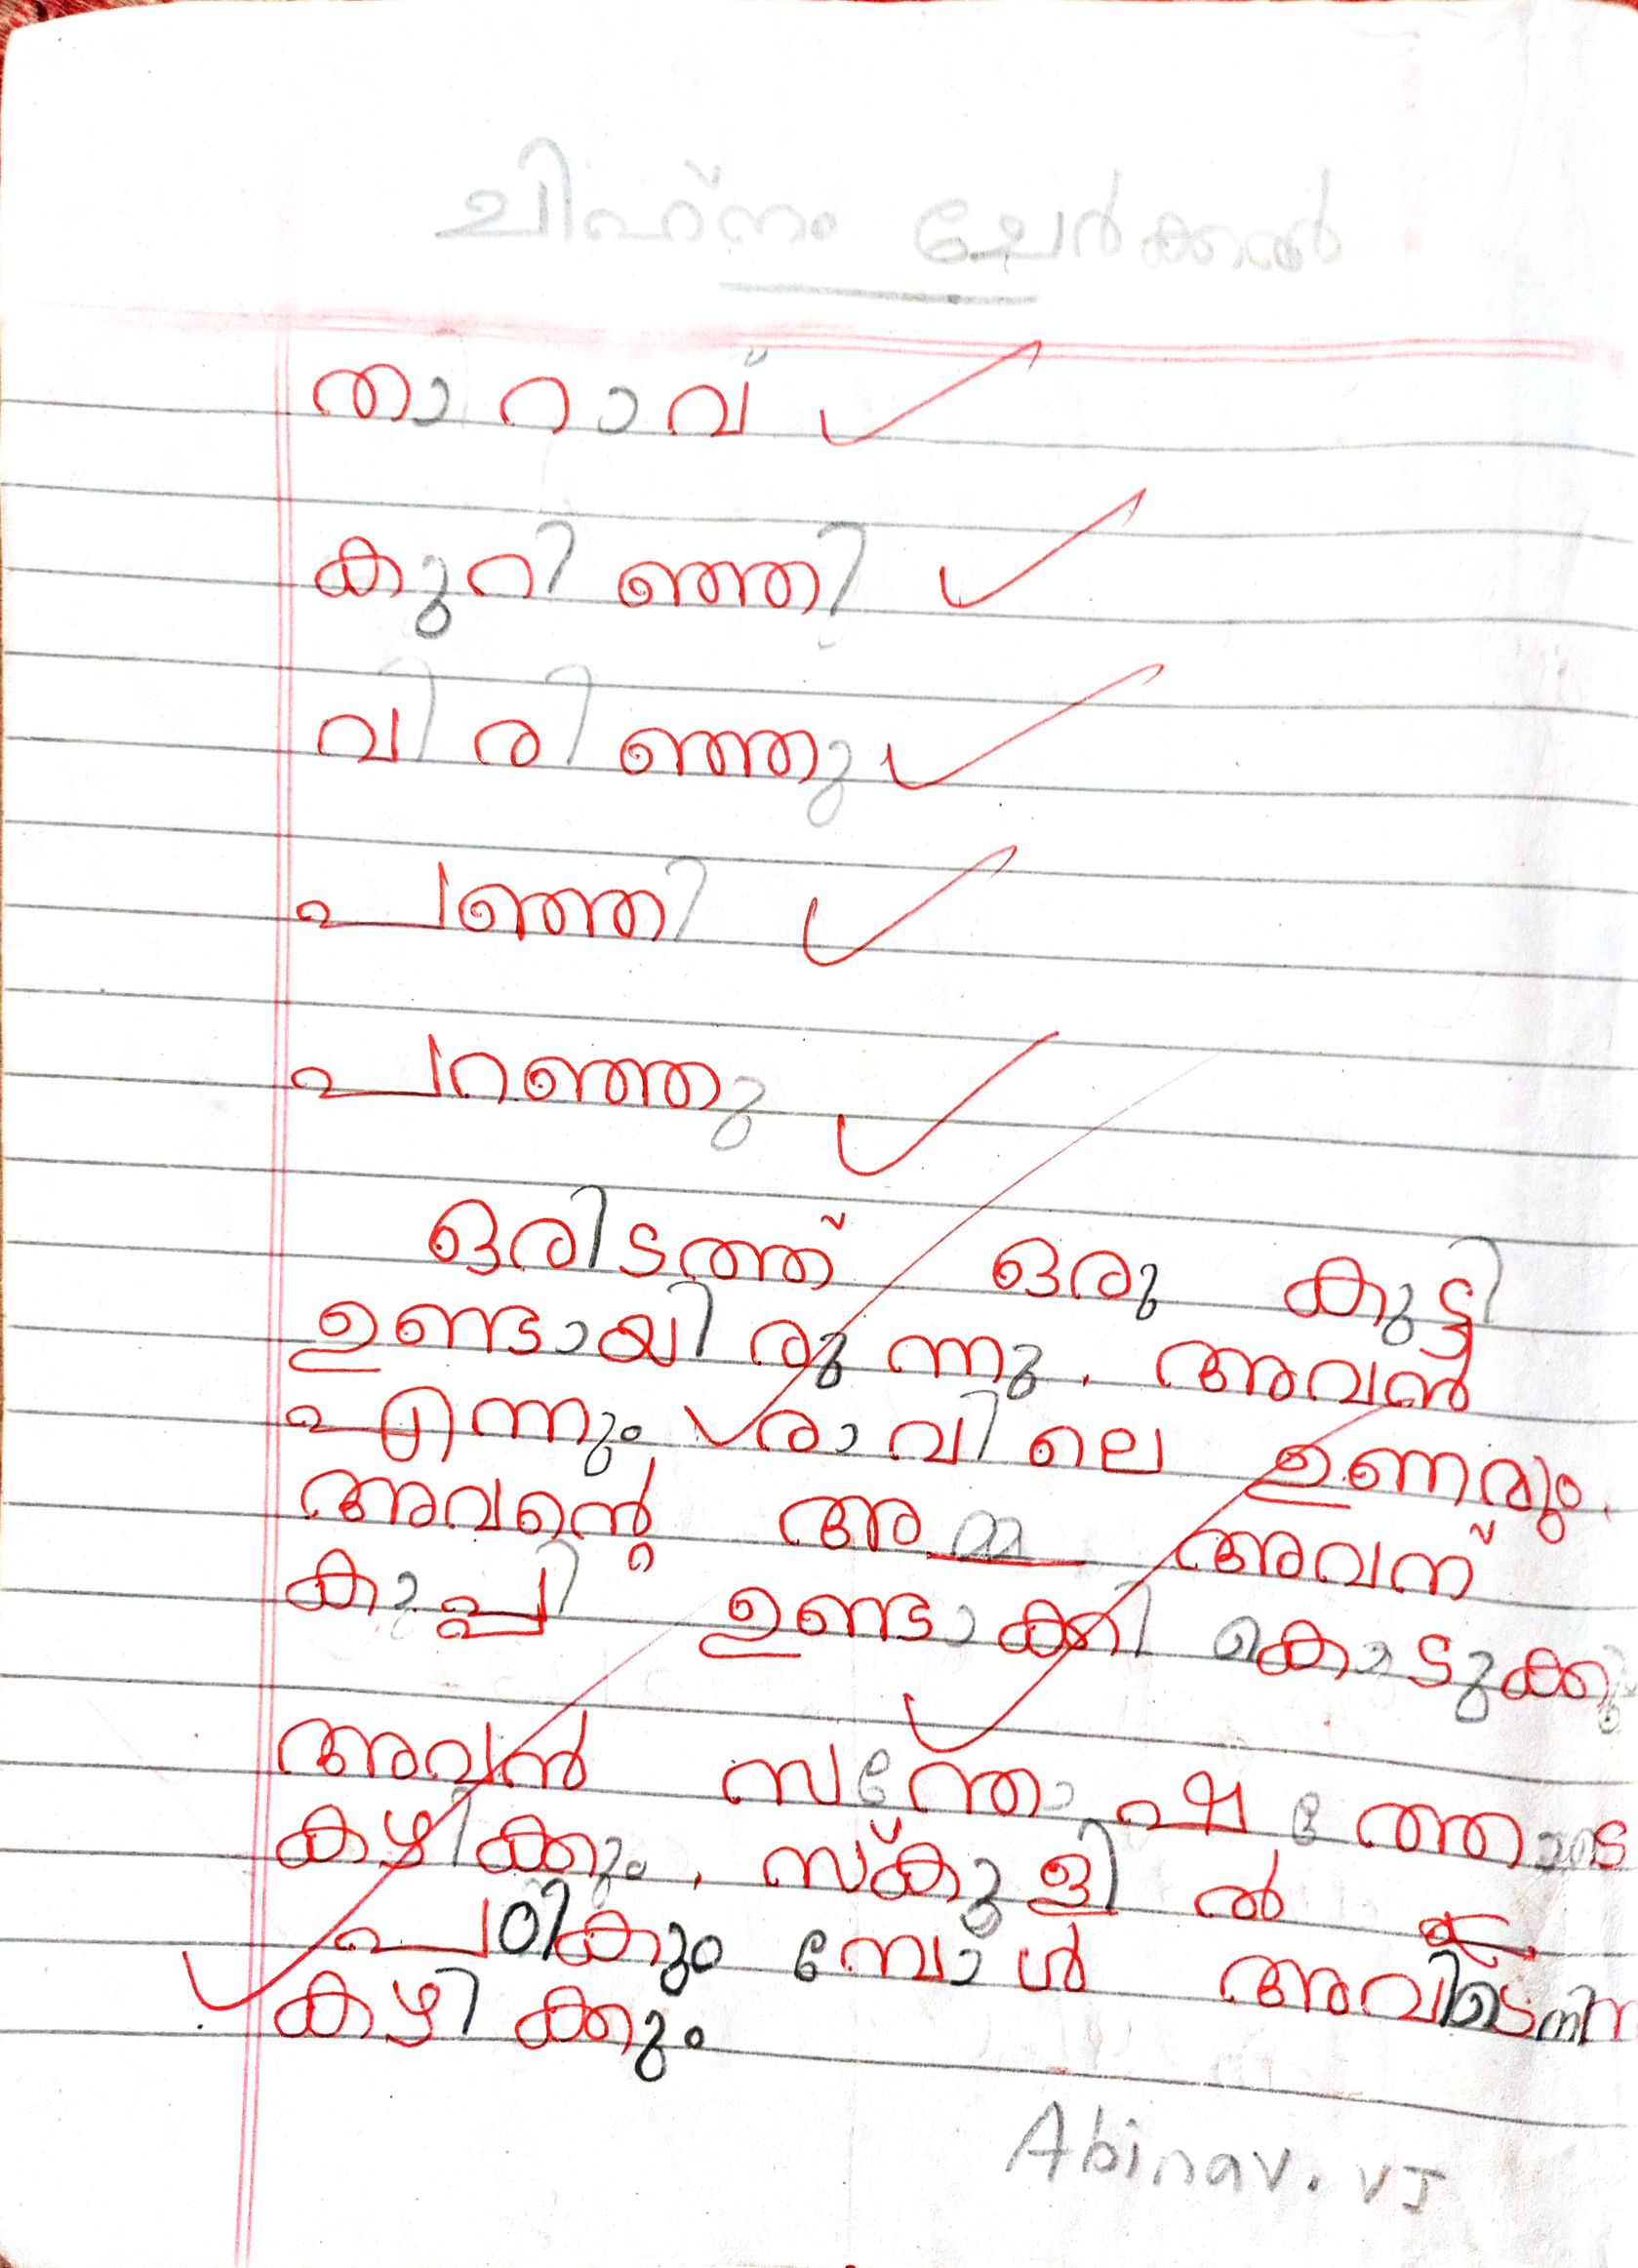 ചിഹ്നം ചേർക്കൽ
താറാവ്
കുറിഞ്ഞി
വിരിഞ്ഞു
പഞ്ഞി
പറഞ്ഞു
ഒരിടത്ത് ഒരു കുട്ടി
ഉണ്ടായിരുന്നു. അവൻ
എന്നും രാവിലെ ഉണരും.
അവന്റെ അമ്മ അവന്
കാപ്പി ഉണ്ടാക്കി കൊടുക്കു
അവൻ സന്തോഷത്തോടെ
കഴിക്കും. സ്കൂളിൽ
പഠികും മ്പോൾ
കഴിക്കും
Abinav. VJ